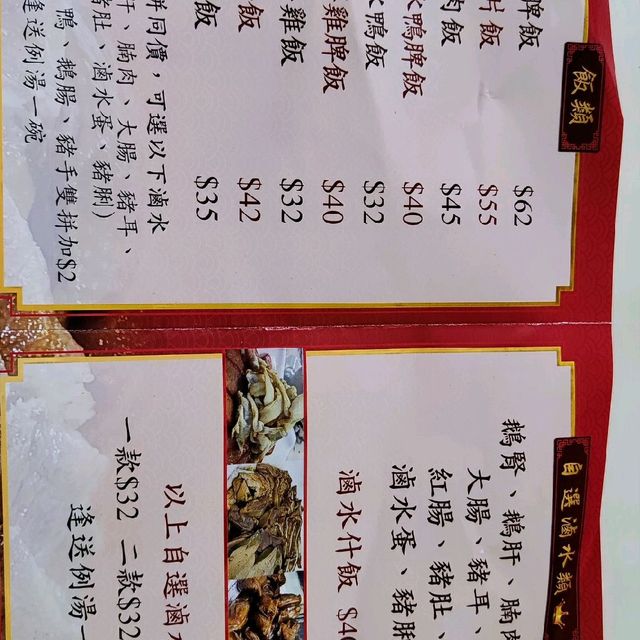 飯類
髀飯 $62
片飯 $55
肉飯 $45
水鴨髀飯 $40
水鴨飯 $32
雞髀飯 $40
雞飯 $32
飯 $42
飯 $35
拼同價，可選以下滷水
肝、腩肉、大腸、豬耳、
豬肚、滷水蛋、豬脷)
鴨、鵝腸、豬手雙拼加$2
逢送例湯一碗
自選滷水類
鵝腎、鵝肝、腩
大腸、豬耳、
紅腸、豬肚、
滷水蛋、豬脷
滷水什飯
以上自選滷
一款$32 二款$32
逢送例湯一